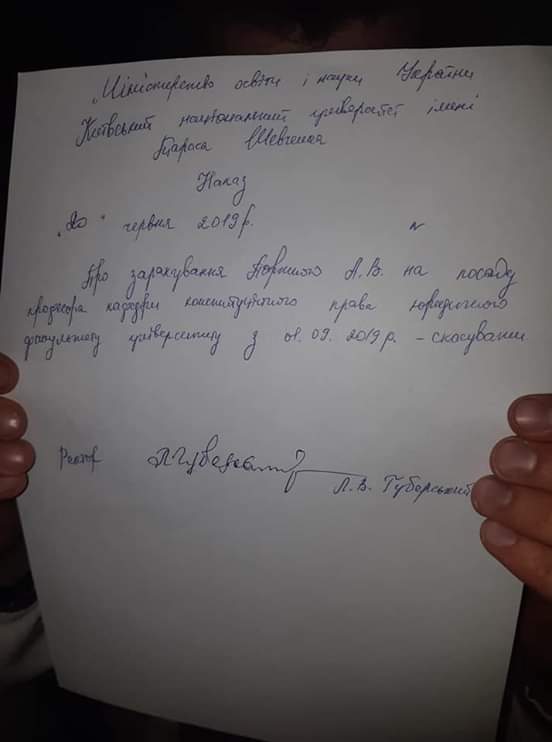 „Міністерство освіти і науки України
Київський національний університет імені
Тараса Шевченка
Наказ
„20" червня 2019 р. №
Про зарахування А.В. на посаду
професора кафедри конституційного права юридичного
факультету університету з 01.09.2019 р. – скасувати
Ректор
Л.В. Губерський